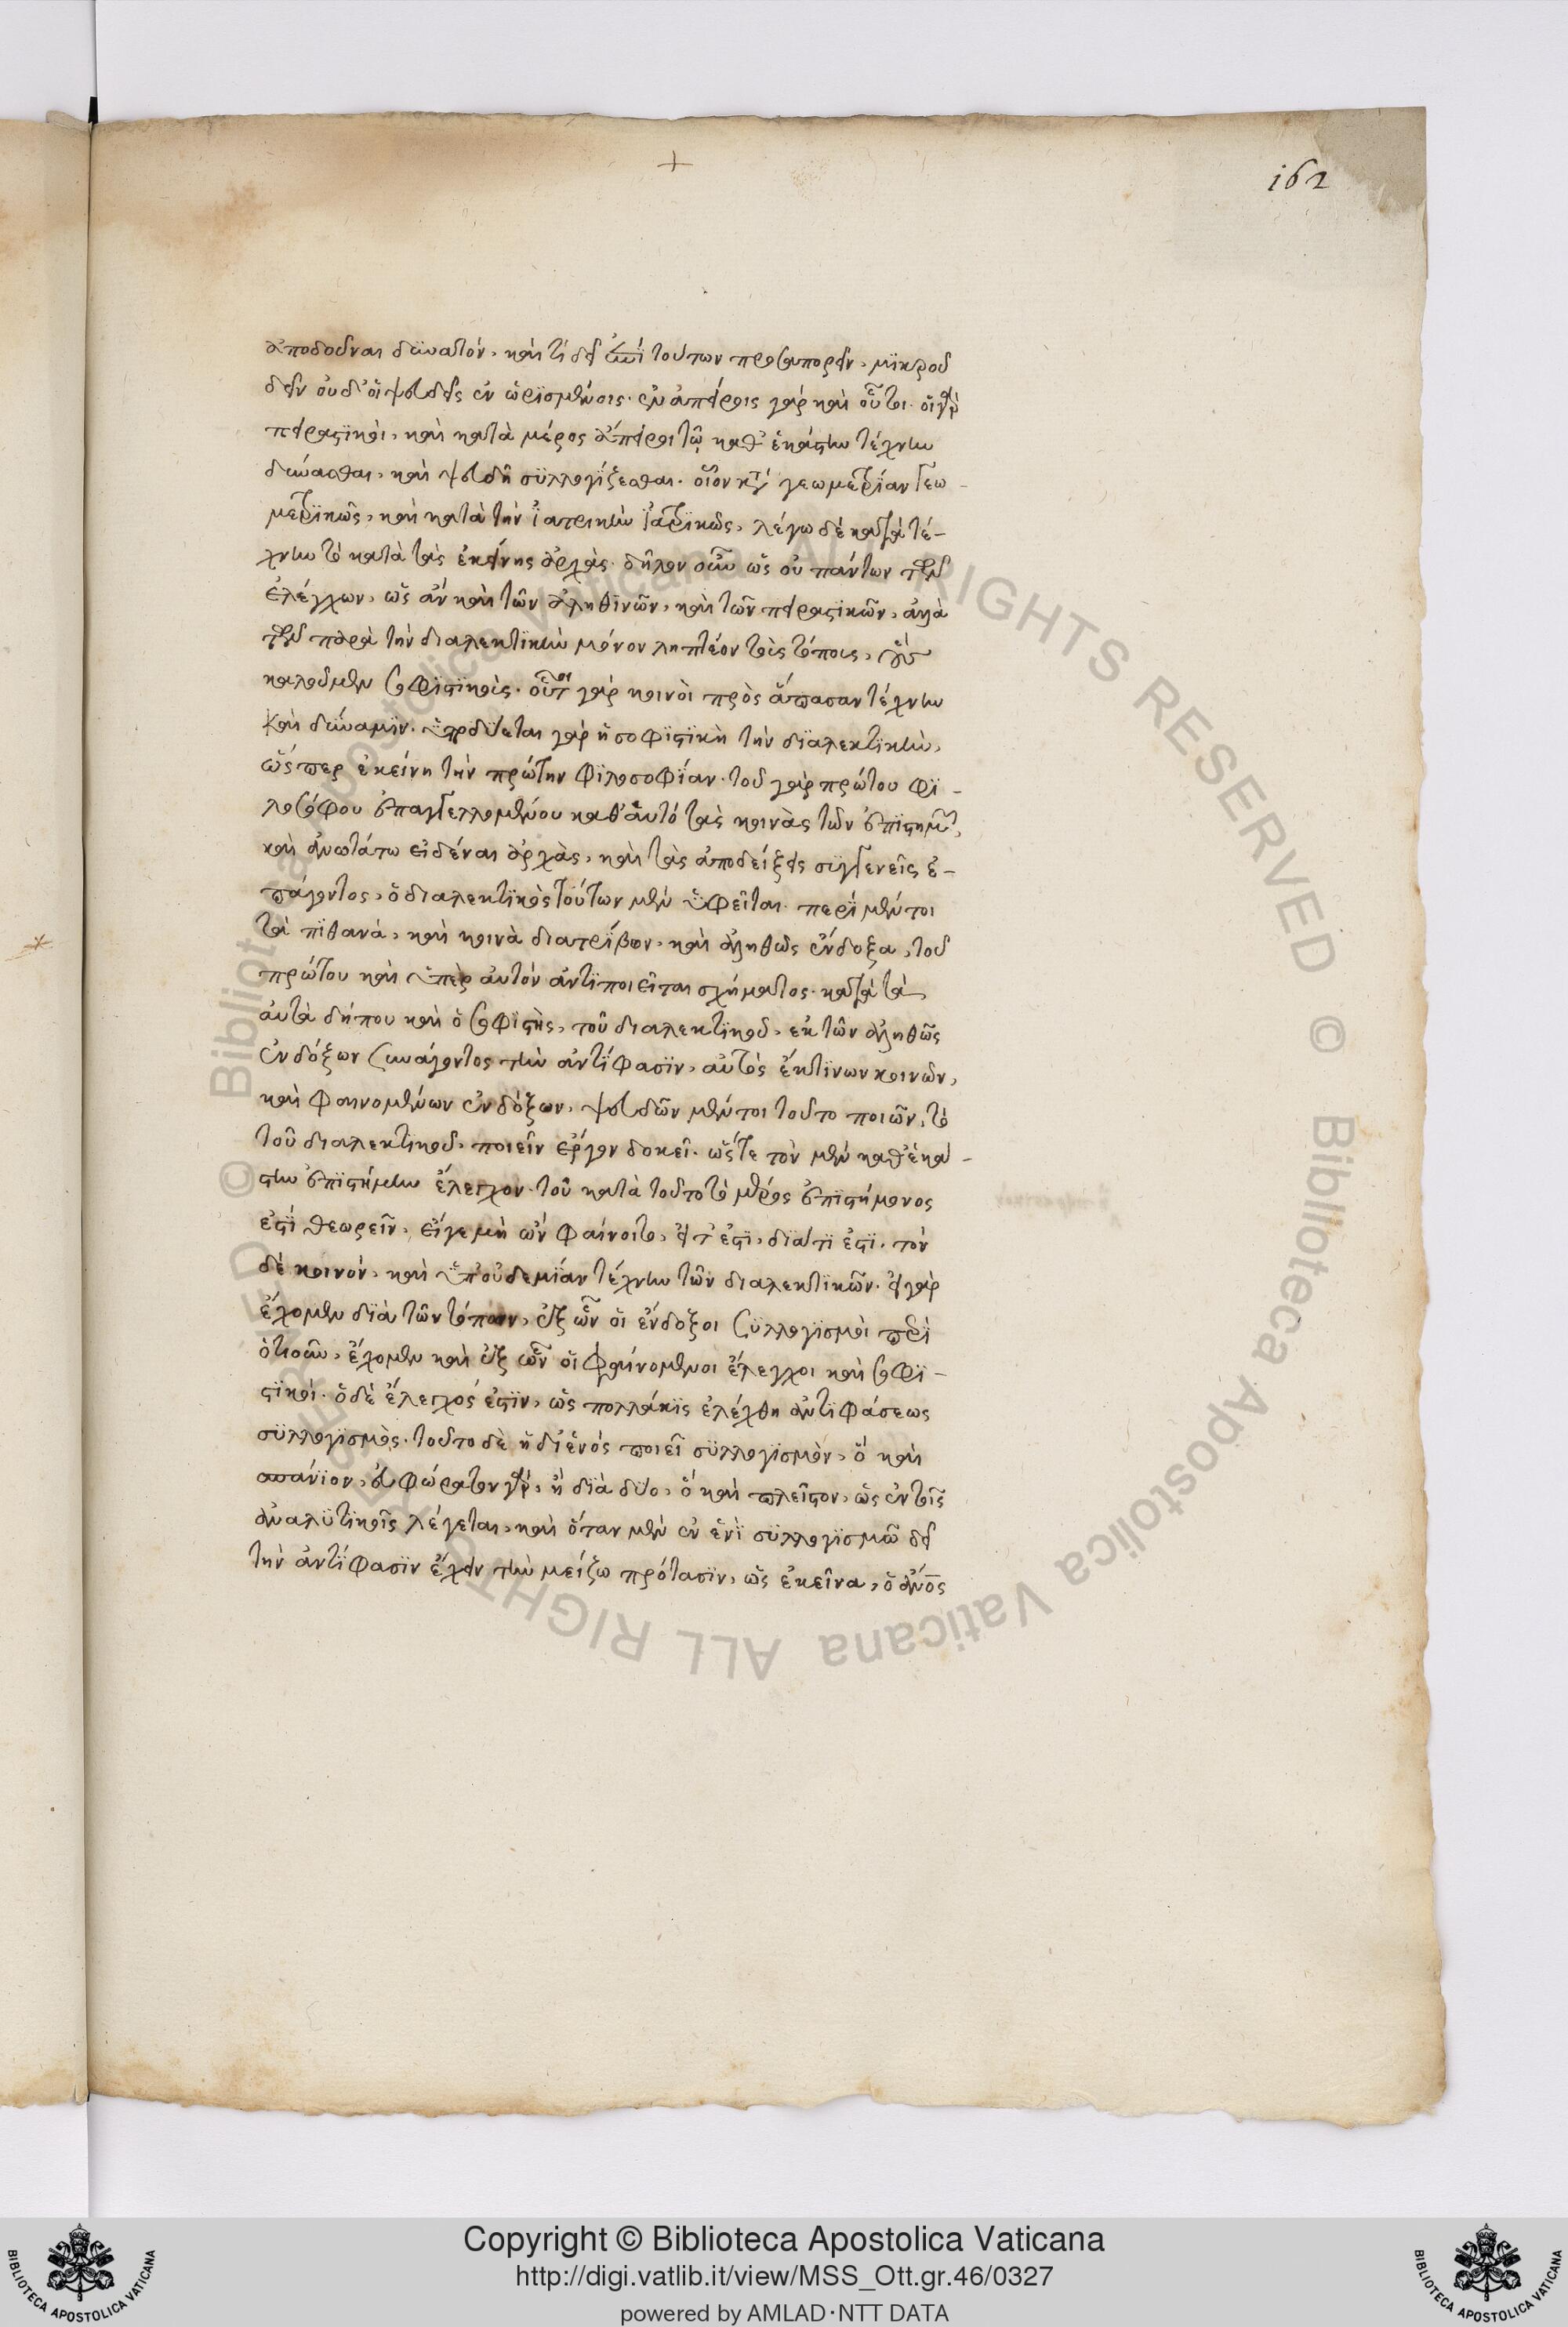 162
ἀποδοῦναι δυνατόν, καὶ τί δεῖ ἐπὶ τούτων προσυπορεῖν, μικροῦ
δεῖν οὐδ' οἱ ψευδεῖς ἐν ὡρισμένοις. ἐν ἀπείροις γὰρ καὶ οὗτοι. οἱ γὰρ
πειραστικοὶ, καὶ κατὰ μέρος ἄπειροι τῷ καθ' ἑκάστην τέχνην
δύνασθαι, καὶ ψευδῆ συλλογίζεσθαι. οἷον κατὰ γεωμετρίαν γεω-
μετρικῶς, καὶ κατὰ τὴν ἰατρικὴν ἰατρικῶς, λέγω δὲ κατὰ τέ-
χνην τὸ κατὰ τὰς ἐκείνης ἀρχάς. δῆλον οὖν ὡς οὐ πάντων τῶν
ἐλέγχων, ὡς ἂν καὶ τῶν ἀληθινῶν, καὶ τῶν πειραστικῶν, ἀλλὰ
τῶν παρὰ τὴν διαλεκτικὴν μόνον ληπτέον τοὺς τόπους, οὓς
καλοῦμεν σοφιστικούς. οὗτοι γὰρ κοινοὶ πρὸς ἅπασαν τέχνην
καὶ δύναμιν. ὑποδύεται γὰρ ἡ σοφιστικὴ τὴν διαλεκτικὴν,
ὥσπερ ἐκείνη τὴν πρώτην φιλοσοφίαν. τοῦ γὰρ πρώτου φι-
λοσόφου ἐπαγγελλομένου καθ' αὑτὸ τὰς κοινὰς τῶν ἐπιστημῶν,
καὶ ἀνωτάτω εἰδέναι ἀρχὰς, καὶ τὰς ἀποδείξεις συγγενεῖς ἐ-
πάγοντος, ὁ διαλεκτικὸς τούτων μὲν ὑφεῖται. περὶ μέντοι
τὰ πιθανὰ, καὶ κοινὰ διατρίβων, καὶ ἀληθῶς ἔνδοξα, τοῦ
πρώτου καὶ ὑπὲρ αὐτὸν ἀντιποιεῖται σχήματος. κατὰ τὰ
αὐτὰ δήπου καὶ ὁ σοφιστὴς, τοῦ διαλεκτικοῦ, ἐκ τῶν ἀληθῶς
ἐνδόξων συνάγοντος τὴν ἀντίφασιν, αὐτὸς ἔκ τινων κοινῶν,
καὶ φαινομένων ἐνδόξων, ψευδῶν μέντοι τοῦτο ποιῶν, τὸ
τοῦ διαλεκτικοῦ, ποιεῖν ἔργον δοκεῖ. ὥστε τὸν μὲν καθ' ἑκά-
στην ἐπιστήμην ἔλεγχον. τοῦ κατὰ τοῦτο τὸ μέρος ἐπιστήμονος
ἐστὶ θεωρεῖν, εἴγε μὴ ὢν φαίνοιτο, εἴ τ' ἐστὶ, διατί ἐστι. τὸν
δὲ κοινὸν, καὶ ὑπ' οὐδεμίαν τέχνην τῶν διαλεκτικῶν. εἰ γὰρ
ἔχομεν διὰ τῶν τόπων, ἐξ ὧν οἱ ἔνδοξοι συλλογισμοὶ περὶ
ὁτιοῦν, ἔχομεν καὶ ἐξ ὧν οἱ φαινόμενοι ἔλεγχοι καὶ σοφι-
στικοί. ὁ δὲ ἔλεγχός ἐστιν, ὡς πολλάκις ἐλέχθη ἀντιφάσεως
συλλογισμός. τοῦτο δὲ ἢ δι' ἑνὸς ποιεῖ συλλογισμὸν, ὃ καὶ
σπάνιον, εὐφώρατον γὰρ, ἢ διὰ δύο, ὃ καὶ πλεῖστον, ὡς ἐν τοῖς
ἀναλυτικοῖς λέγεται, καὶ ὅταν μὲν ἐν ἑνὶ συλλογισμῷ δεῖ
τὴν ἀντίφασιν ἔχειν τὴν μείζω πρότασιν, ὡς ἐκεῖνα, ὁ ἀνος
Copyright © Biblioteca Apostolica Vaticana
http://digi.vatlib.it/view/MSS_Ott.gr.46/0327
powered by AMLAD·NTT DATA
BIBLIOTECA APOSTOLICA VATICANA
BIBLIOTECA APOSTOLICA VATICANA